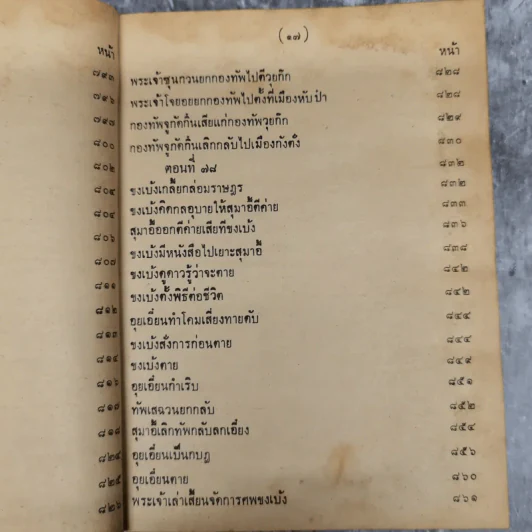 หน้า
๗๙๓
๗๙๖
๗๙๘
๘๐๐
๘๐๒
๘๐๔
๘๐๔
๘๐๖
๘๐๗
๘๑๑
๘๑๒
๘๑๓
๘๑๔
๘๑๖
๘๑๗
๘๑๘
๘๒๔
๘๒๕
๘๒๖
(๑๗)
หน้า
พระเจ้าซุนกวนยกกองทัพไปตีวุยก๊ก ๘๒๘
พระเจ้าโจยอยยกกองทัพไปตั้งที่เมืองหับป๋า ๘๒๘
กองทัพจูกัดกิ๋นเสียแก่กองทัพวุยก๊ก ๘๒๙
กองทัพจูกัดกิ๋นเลิกกลับไปเมืองกังตั๋ง ๘๓๐
ตอนที่ ๗๘ ๘๓๒
ขงเบ้งเกลี้ยกล่อมราษฎร ๘๓๒
ขงเบ้งคิดกลอุบายให้สุมาอี้ตีค่าย ๘๓๔
สุมาอี้ออกตีค่ายเสียทีขงเบ้ง ๘๓๖
ขงเบ้งมีหนังสือไปเยาะสุมาอี้ ๘๓๘
ขงเบ้งดูดาวรู้ว่าจะตาย ๘๔๒
ขงเบ้งตั้งพิธีต่อชีวิต ๘๔๒
อุยเอี๋ยนทำโคมเสี่ยงทายดับ ๘๔๔
ขงเบ้งสั่งการก่อนตาย ๘๔๔
ขงเบ้งตาย ๘๔๙
อุยเอี๋ยนกำเริบ ๘๕๑
ทัพเสฉวนยกกลับ ๘๕๒
สุมาอี้เลิกทัพกลับลกเอี๋ยง ๘๕๔
อุยเอี๋ยนเป็นกบฎ ๘๕๖
อุยเอี๋ยนตาย ๘๖๐
พระเจ้าเล่าเสี้ยนจัดการศพขงเบ้ง ๘๖๑